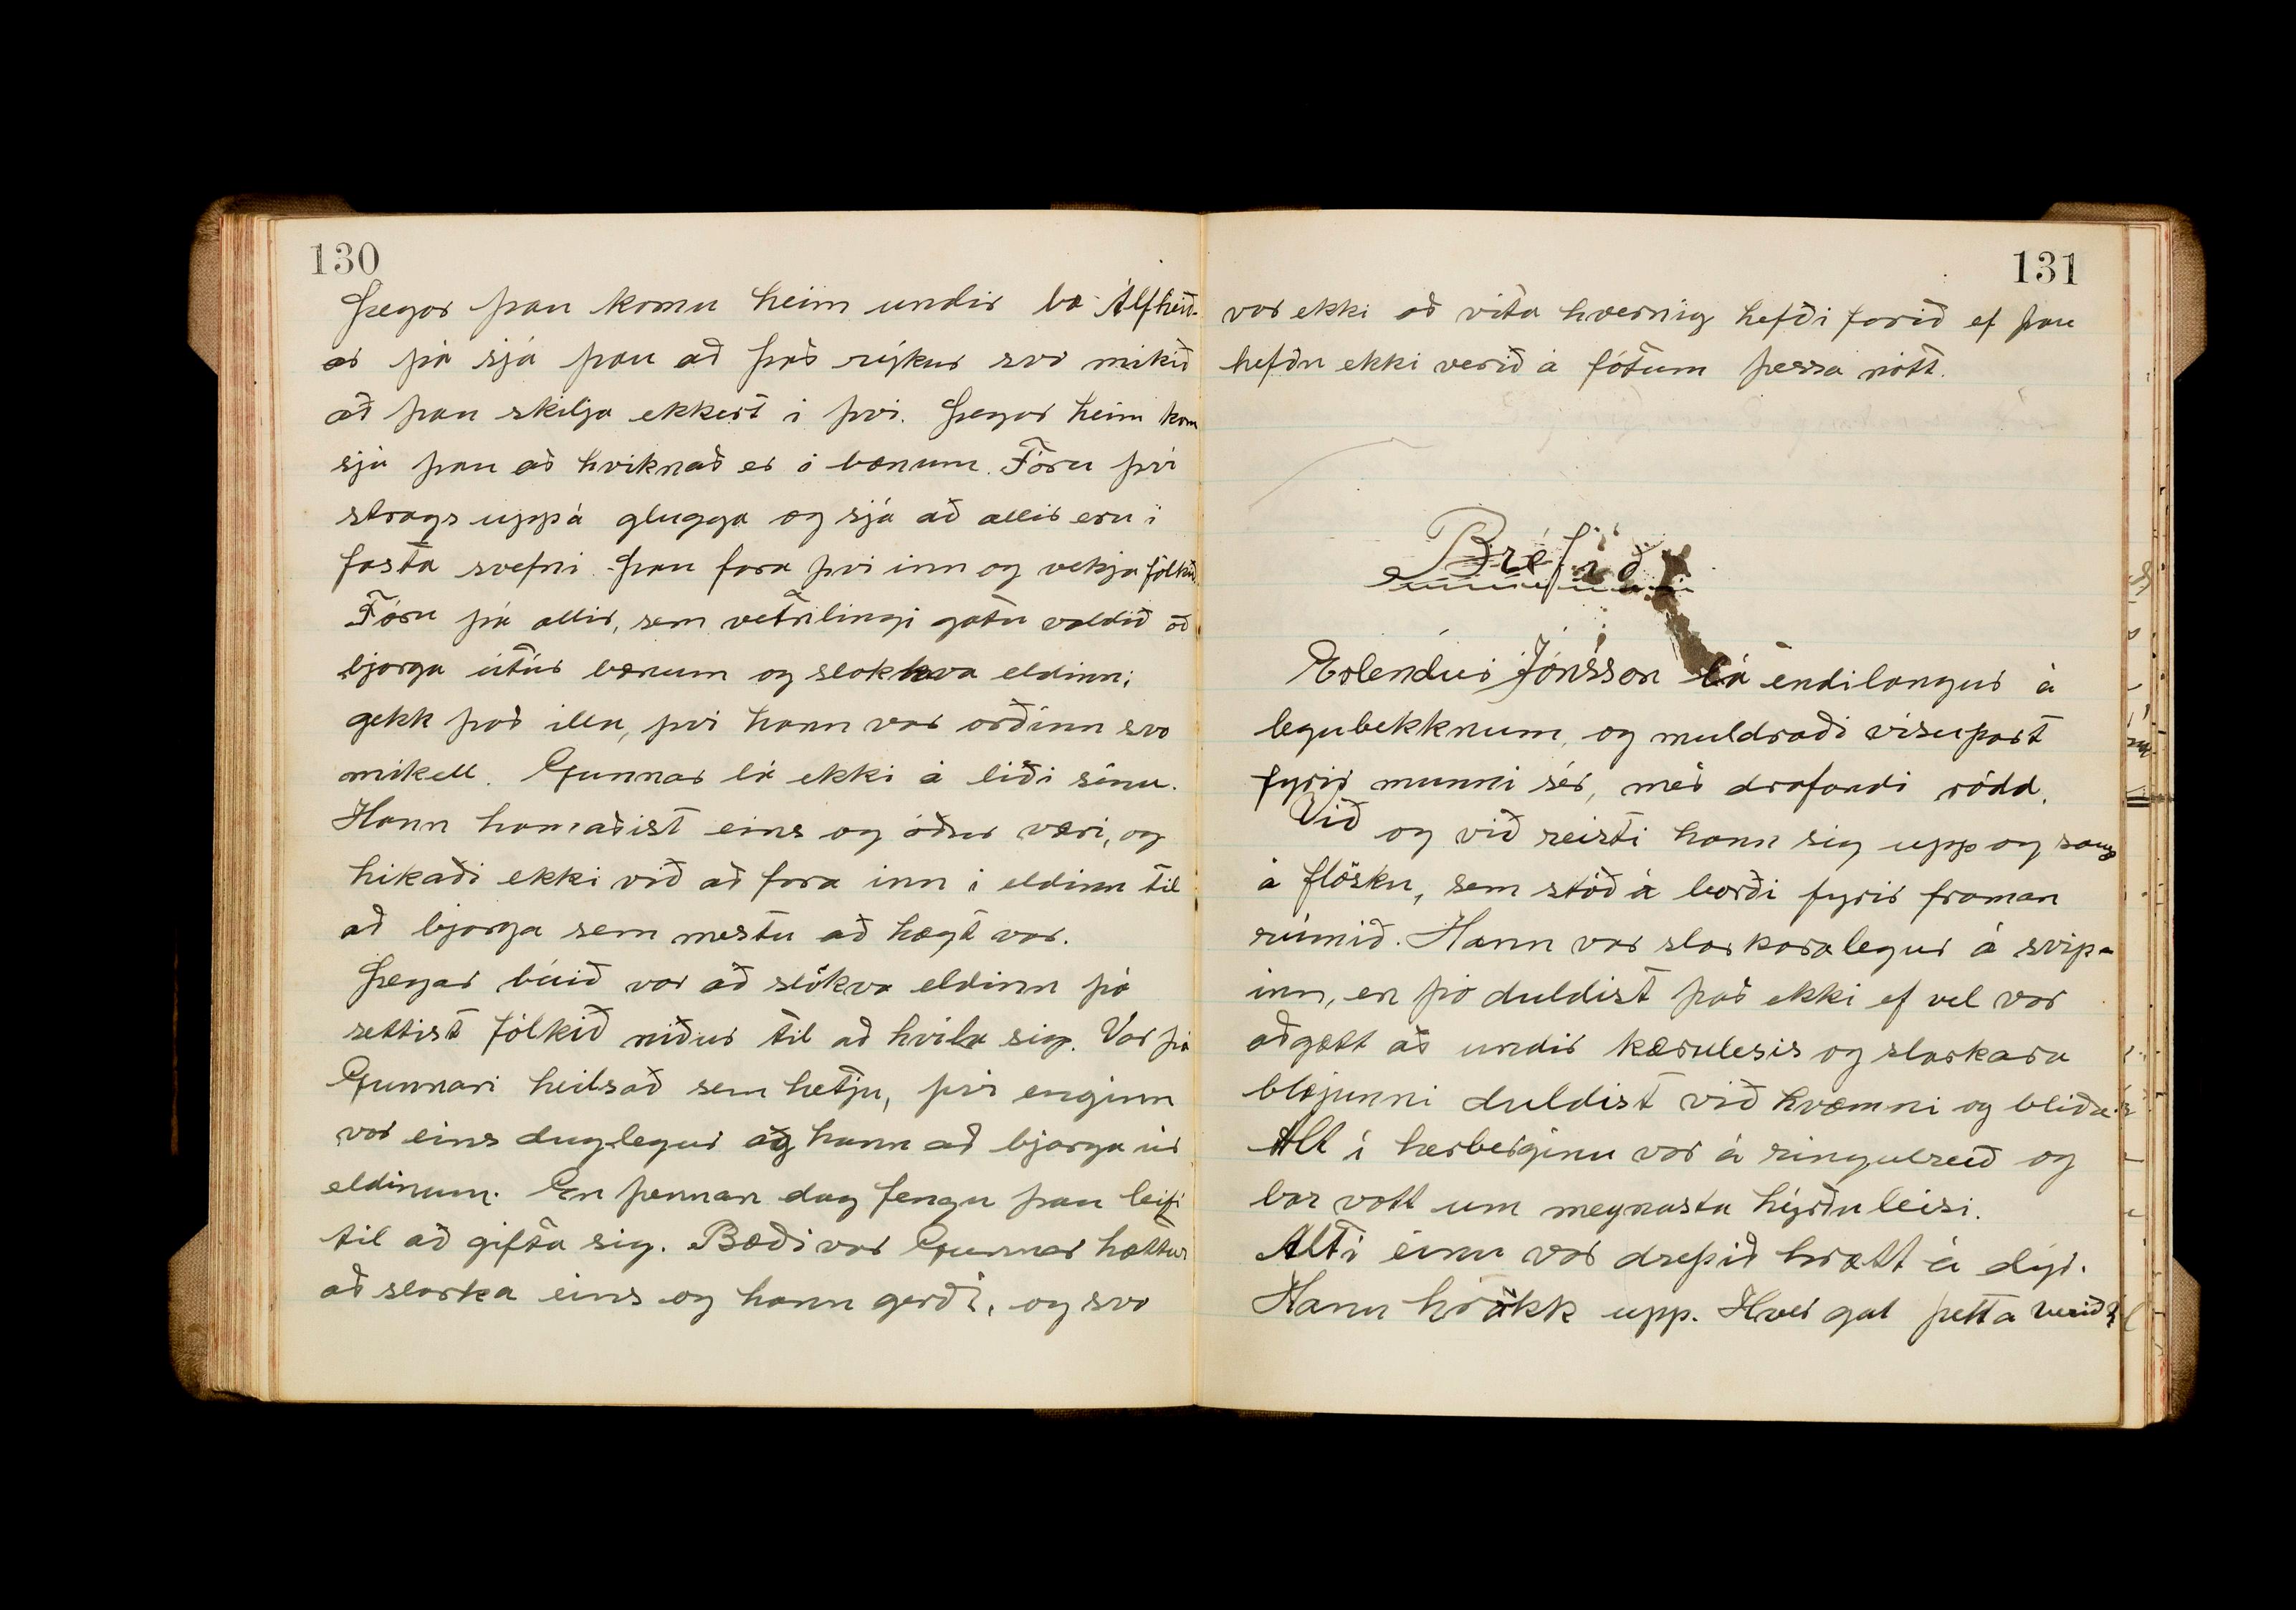 130
Þegar þau komu heim undir bæ Álfheið-
ar þá sjá þau að það rýkur svo mikið
að þau skilja ekkert i þvi. Þegar heim kom
sjá þau að kviknað er i bænum. Fóru þvi
strags uppá glugga og sjá að allir eru i
fasta svefni. Þau fara þvi inn og vekja fólkið.
Fóru þá allir, sem vetrlingi gátu valdið að
bjarga útúr bænum og slökkva eldinn;
gekk það illa, þvi hann var orðinn svo
mikell. Gunnar lá ekki á liði sinu.
Hann hamaðist eins og óður væri, og
hikaði ekki við að fara inn i eldinn til
að bjarga sem mestu að hægt var.
Þegar búið var að slökva eldinn þá
settist fólkið niður til að hvila sig. Var þá
Gunnari heilsað sem hetju, þvi enginn
var eins duglegur og hann að bjarga úr
eldinum. En þennan dag fengu þau leifi
til að gifta sig. Bæði var Gunnar hættur
að slarka eins og hann gerði, og svo
131
var ekki að vita hvernig hefði farið ef þau
hefðu ekki verið á fótum þessa nótt.
Bréfið
Erlendur Jónsson lá endilangur á
legubekknum, og muldraði visupart
fyrir munni sér, með drafandi rödd.
Við og við reisti hann sig upp og saup
á flösku, sem stóð á borði fyrir framan
rúmið. Hann var slarkaralegur á svip-
inn, en þó duldist það ekki ef vel var
aðgætt að undir kærulesis og slarkara
blæjunni duldist við kvæmni og bliða.
Alt i herberginu var á ringulreið og
bar vott um megnasta hirðuleisi.
Alt i einu var drepið hratt á dyr.
Hann hrökk upp. Hver gat þetta verið?